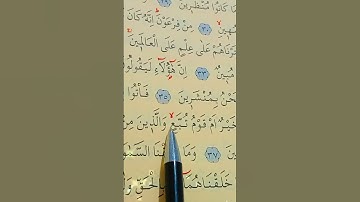 مَا كَانُوا مُنْظَرِينَ
مُهِينِ ٣٠ مِنْ فِرْعَوْنَ اِنَّهُ كَانَ
تَرْنَاهُمْ عَلٰى عِلْمٍ عَلَى الْعَالَمِينَ
مُبِينٌ ٣٣ اِنَّ هٰٓؤُلَٓاءِ لَيَقُولُو
نَحْنُ بِمُنْشَرِينَ ٣٥ فَأْتُوا
خَيْرٌ اَمْ قَوْمُ تُبَّعٍ وَالَّذِينَ مِنْ
ينَ ٣٧ وَمَا خَلَقْنَا السَّمٰو
خَلَقْنَاهُمَٓا بِالْحَقِّ وَل